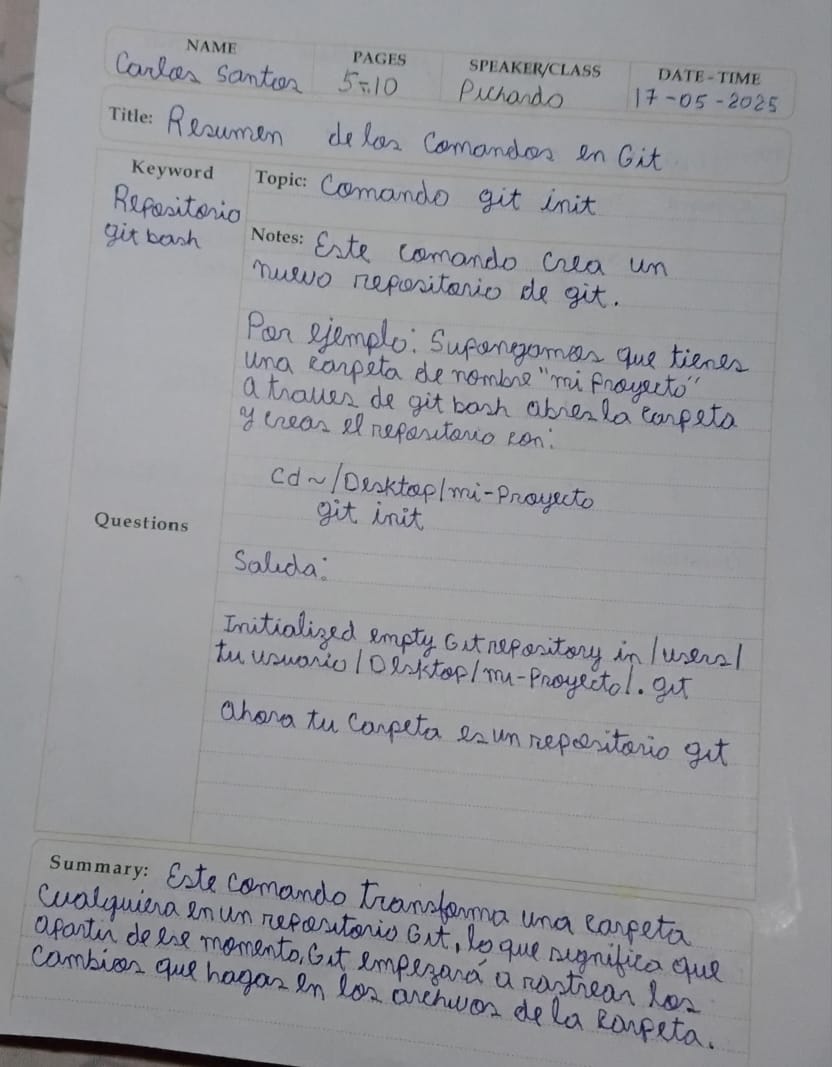 NAME
Carlos Santos
PAGES
5-10
SPEAKER/CLASS
Pichardo
DATE-TIME
17-05-2025
Title: Resumen de los Comandos en Git
Keyword
Repositorio
git bash
Questions
Topic: Comando git init
Notes: Este comando crea un
nuevo repositorio de git.
Por ejemplo: Supongamos que tienes
una carpeta de nombre "mi Proyecto"
a traves de git bash abres la carpeta
y creas el repositorio con:
cd ~/Desktop/mi-Proyecto
git init
Salida:
Initialized empty Git repository in /users/
tu usuario/Desktop/mi-Proyecto/.git
ahora tu Carpeta es un repositorio git
Summary: Este comando transforma una carpeta
cualquiera en un repositorio Git, lo que significa que
apartir de ese momento, Git empezará a rastrear los
cambios que hagas en los archivos de la carpeta.